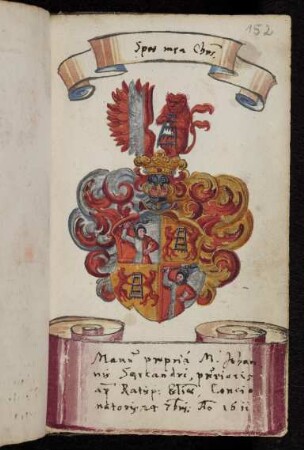 152
Spes mea Chrs.
Manu propria M. Johan
nis Sartandri,
Ratisp: Eccliæ Concio
natoris. 24 7bris. Ao 1611